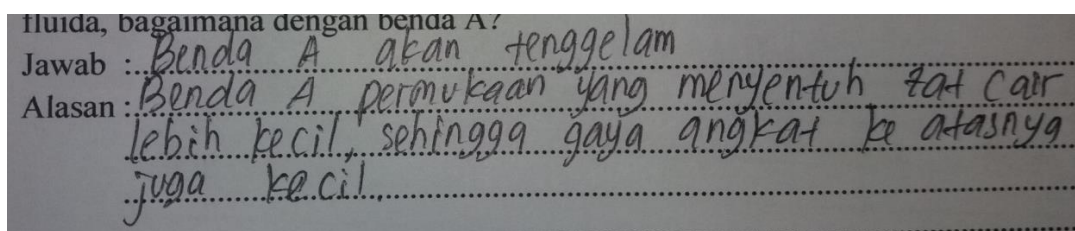 fluida, bagaimana dengan benda A?
Jawab : Benda A akan tenggelam
Alasan : Benda A permukaan yang menyentuh zat cair
lebih kecil, sehingga gaya angkat ke atasnya
juga kecil.